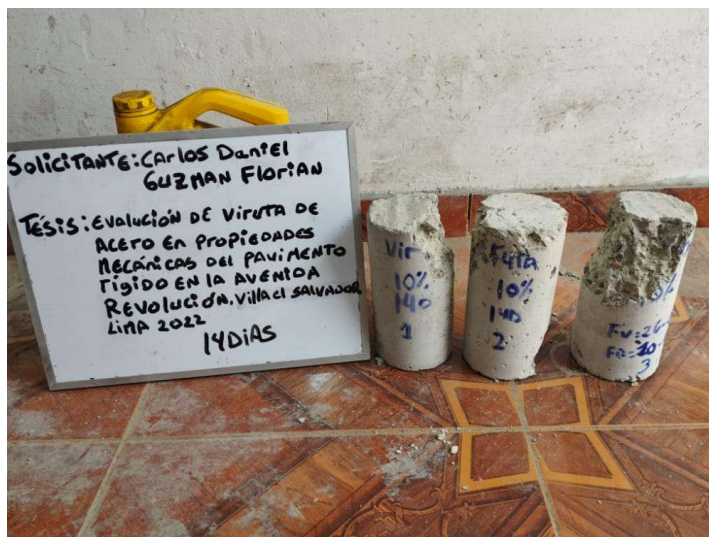 SoliciTANTE: CArlos DaniEl
GUZMAN FloriAN
TÉSIS: EVALUCIÓN DE VIRUTA DE
ACERO EN PROPIEDADES
MECÁNICAS DEL PAVIMENTO
rígido EN LA AVENIDA
REVOLUCIÓN, Villa el SALVADOR
LIMA 2022
14DíAS
Vir
10%
14D
1
10%
14D
2
3